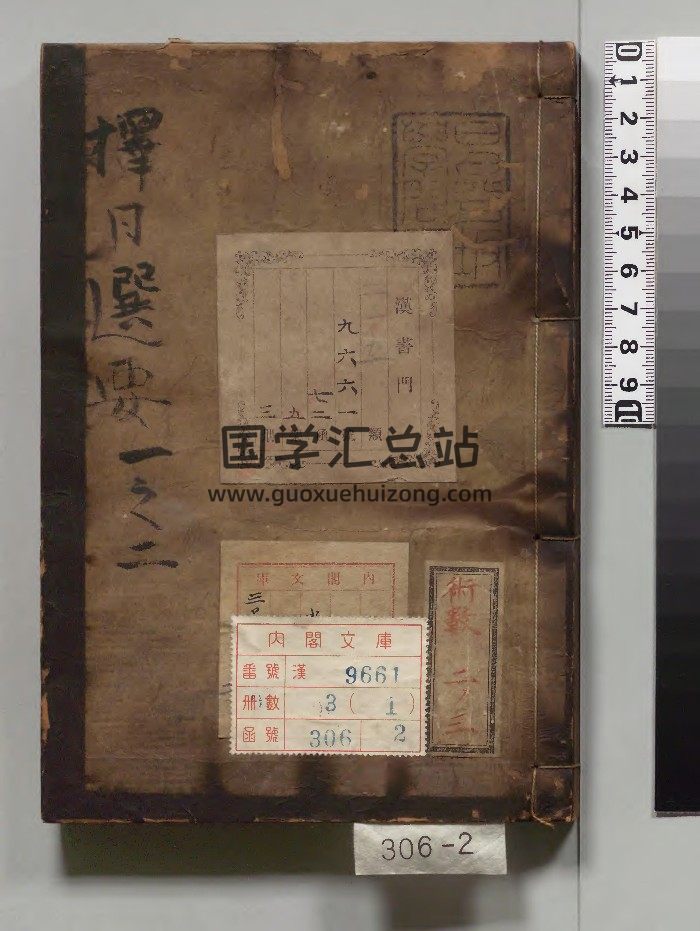 擇日選要 一之二
漢書門
九六六一
類
五
三
国学汇总站
www.guoxuehuizong.com
內閣文庫
內閣文庫
番號 漢 9661
册數 3 ( 1 )
函號 306 2
術數 二ノ三
306-2
0 1 2 3 4 5 6 7 8 9 10